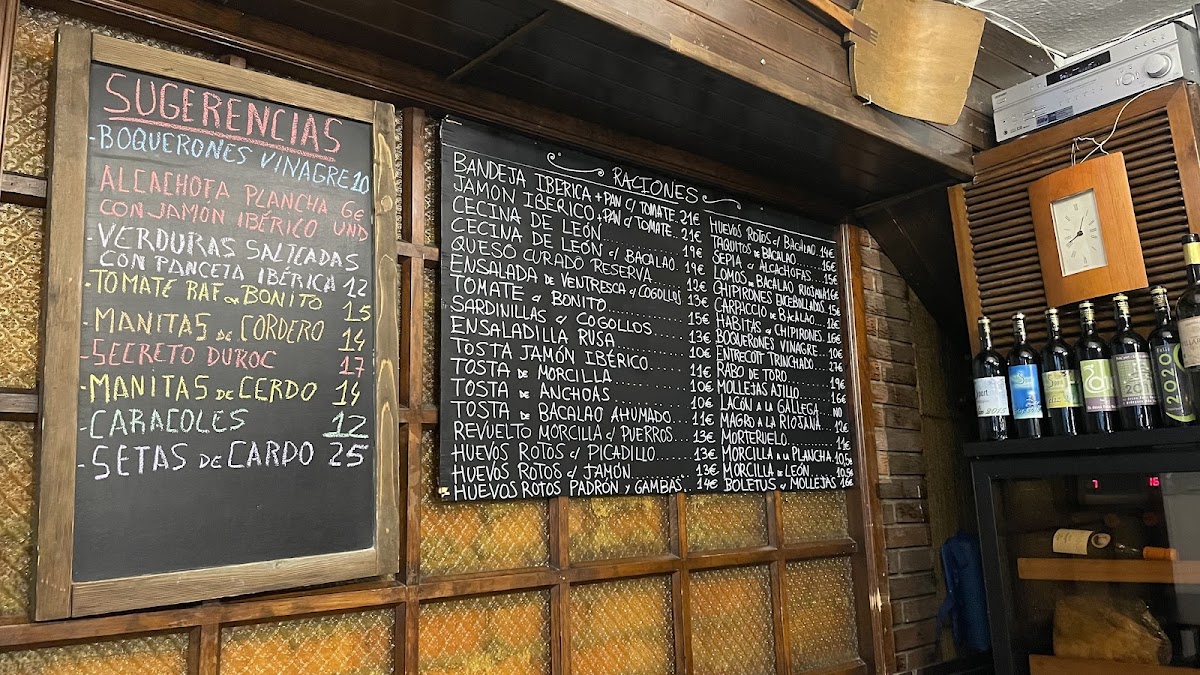 SUGERENCIAS
-BOQUERONES VINAGRE 10
ALCACHOFA PLANCHA 6€
CON JAMÓN IBÉRICO UND
-VERDURAS SALTEADAS
CON PANCETA IBÉRICA 12
-TOMATE RAF CON BONITO 15
-MANITAS DE CORDERO 14
-SECRETO DUROC 17
-MANITAS DE CERDO 14
-CARACOLES 12
-SETAS DE CARDO 25
RACIONES
BANDEJA IBERICA + PAN C/ TOMATE. 21€
JAMON IBERICO + PAN C/ TOMATE. 21€
CECINA DE LEÓN 19€
CECINA DE LEÓN C/ BACALAO. 19€
QUESO CURADO RESERVA 12€
ENSALADA DE VENTRESCA C/ COGOLLOS 13€
TOMATE C/ BONITO 15€
SARDINILLAS C/ COGOLLOS 13€
ENSALADILLA RUSA 10€
TOSTA JAMÓN IBÉRICO 11€
TOSTA DE MORCILLA 10€
TOSTA DE ANCHOAS 10€
TOSTA DE BACALAO AHUMADO 11€
REVUELTO MORCILLA C/ PUERROS 13€
HUEVOS ROTOS C/ PICADILLO 13€
HUEVOS ROTOS C/ JAMÓN 13€
HUEVOS ROTOS PADRÓN Y GAMBAS 14€
HUEVOS ROTOS C/ BACALAO 14€
TAQUITOS DE BACALAO 16€
SEPIA C/ ALCACHOFAS 15€
LOMOS DE BACALAO RIOJANA 16€
CHIPIRONES ENCEBOLLADOS 15€
CARPACCIO DE BACALAO 12€
HABITAS C/ CHIPIRONES 16€
BOQUERONES VINAGRE 10€
ENTRECOTT TRINCHADO 17€
RABO DE TORO 19€
MOLLEJAS AJILLO 14€
LACÓN A LA GALLEGA NO
MAGRO A LA RIOJANA 12€
MORTERUELO 11€
MORCILLA A LA PLANCHA 10,5
MORCILLA DE LEÓN 10,5€
BOLETUS C/ MOLLEJAS 16€
2015
2020
7
16